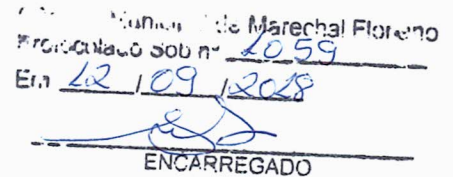 de Marechal Floriano
Protocolado sob nº 2059
Em 12 / 09 / 2018
ENCARREGADO